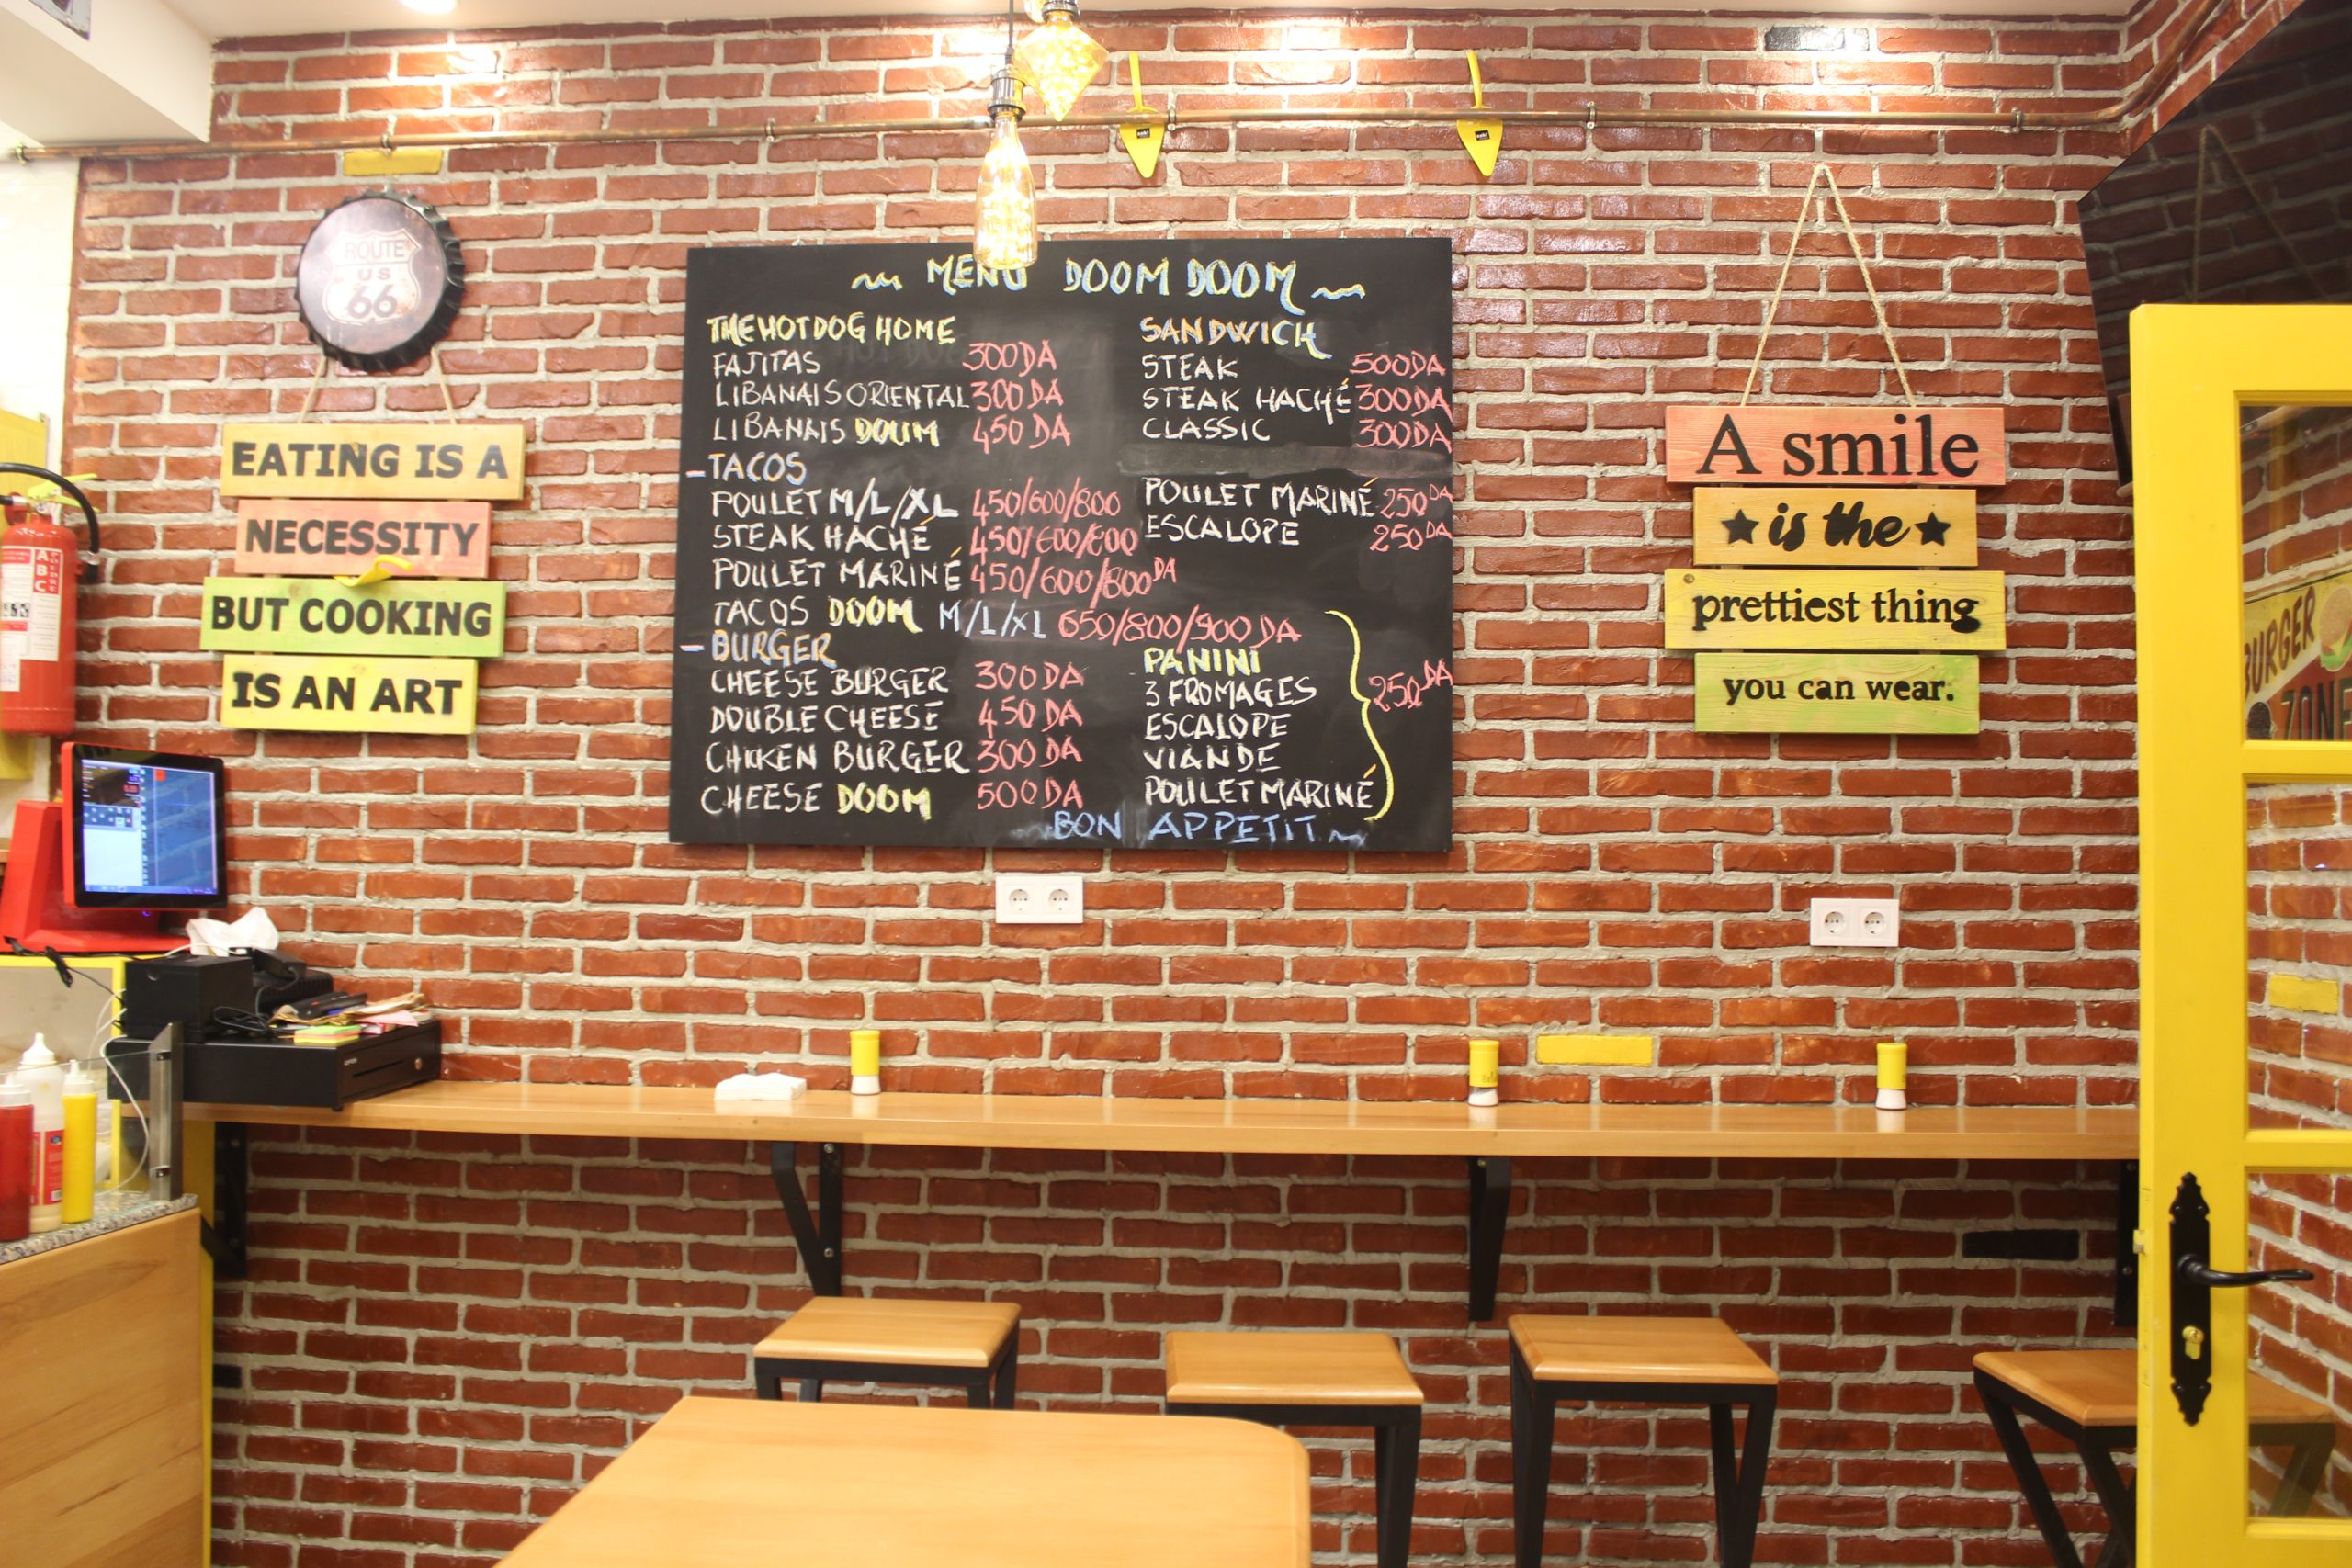 ROUTE
US
66
EATING IS A
NECESSITY
BUT COOKING
IS AN ART
MENU DOOM DOOM
THE HOTDOG HOME
FAJITAS 300DA
LIBANAIS ORIENTAL 300DA
LIBANAIS DOUM 450 DA
-TACOS
POULET M/L/XL 450/600/800
STEAK HACHÉ 450/600/800
POULET MARINÉ 450/600/800DA
TACOS DOOM M/L/XL 650/800/900DA
-BURGER
CHEESE BURGER 300DA
DOUBLE CHEESE 450DA
CHICKEN BURGER 300DA
CHEESE DOOM 500DA
SANDWICH
STEAK 500DA
STEAK HACHÉ 300DA
CLASSIC 300DA
POULET MARINÉ 250DA
ESCALOPE 250DA
PANINI
3 FROMAGES
ESCALOPE
VIANDE
POULET MARINÉ
250DA
BON APPETIT
A smile
is the
prettiest thing
you can wear.
BURGER
ZONE
A
B
C